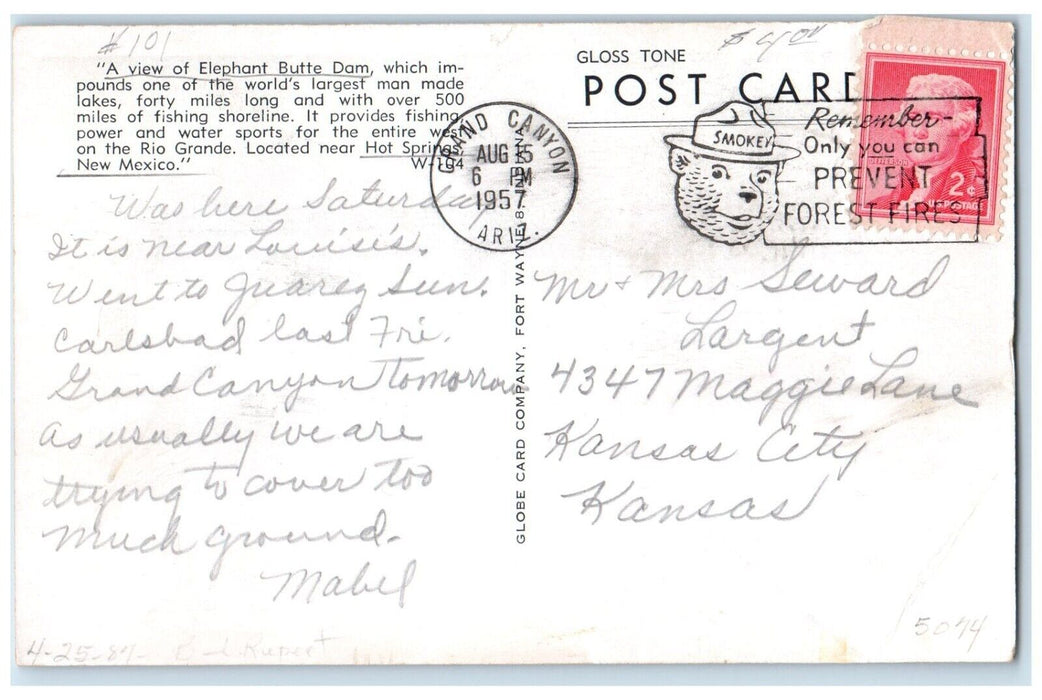 #101
"A view of Elephant Butte Dam, which im-
pounds one of the world's largest man made
lakes, forty miles long and with over 500
miles of fishing shoreline. It provides fishing,
power and water sports for the entire west
on the Rio Grande. Located near Hot Springs,
New Mexico."
W-194
Was here Saturday
It is near Louise's.
Went to Juarez Sun.
Carlsbad last Fri.
Grand Canyon Tomorrow
As usually we are
trying to cover too
much ground.
Mabel
4-25-87- Rupert
GLOBE CARD COMPANY, FORT WAYNE 8, INDIANA
GLOSS TONE
POST CARD
GRAND CANYON
AUG 15
6 PM
1957
ARIZ.
SMOKEY
Remember-
Only you can
PREVENT
FOREST FIRES
2¢
U.S. POSTAGE
Mr + Mrs Seward
Largent
4347 Maggie Lane
Kansas City
Kansas
5074